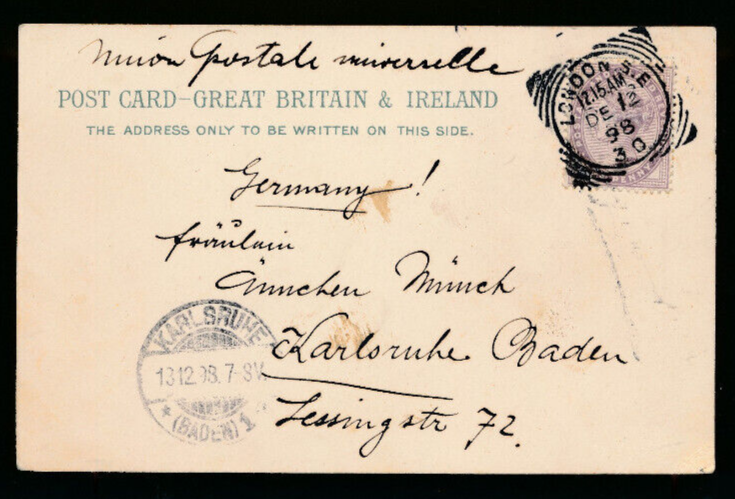 Union Postale universelle
POST CARD-GREAT BRITAIN & IRELAND
THE ADDRESS ONLY TO BE WRITTEN ON THIS SIDE.
LONDON S.E
12.15.AM
DE 12
98
30
Germany!
fräulein
Ännchen Münch
Karlsruhe Baden
Lessingstr 72.
KARLSRUHE
13.12.98.7-8V.
* (BADEN) 1